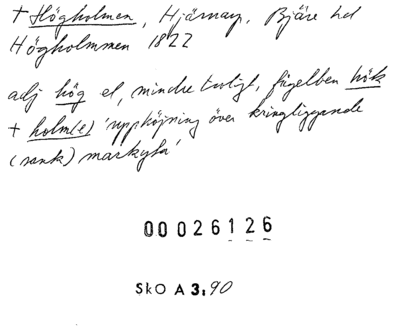 † Högholmen, Hjärnarp, Bjäre hd
Högholmmen 1822
adj hög el, mindre troligt, fågelben hök
+ holm(e) 'upphöjning över kringliggande
(sank) markyta'
00026126
SkO A 3:90